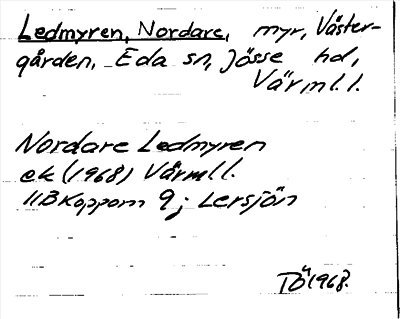 Ledmyren, Nordare, myr, Väster-
gården, Eda sn, Jösse hd,
Värml. l.
Nordare Ledmyren
ek (1968) Värml l.
11B Koppom 9j Lersjön
TÖ 1968.